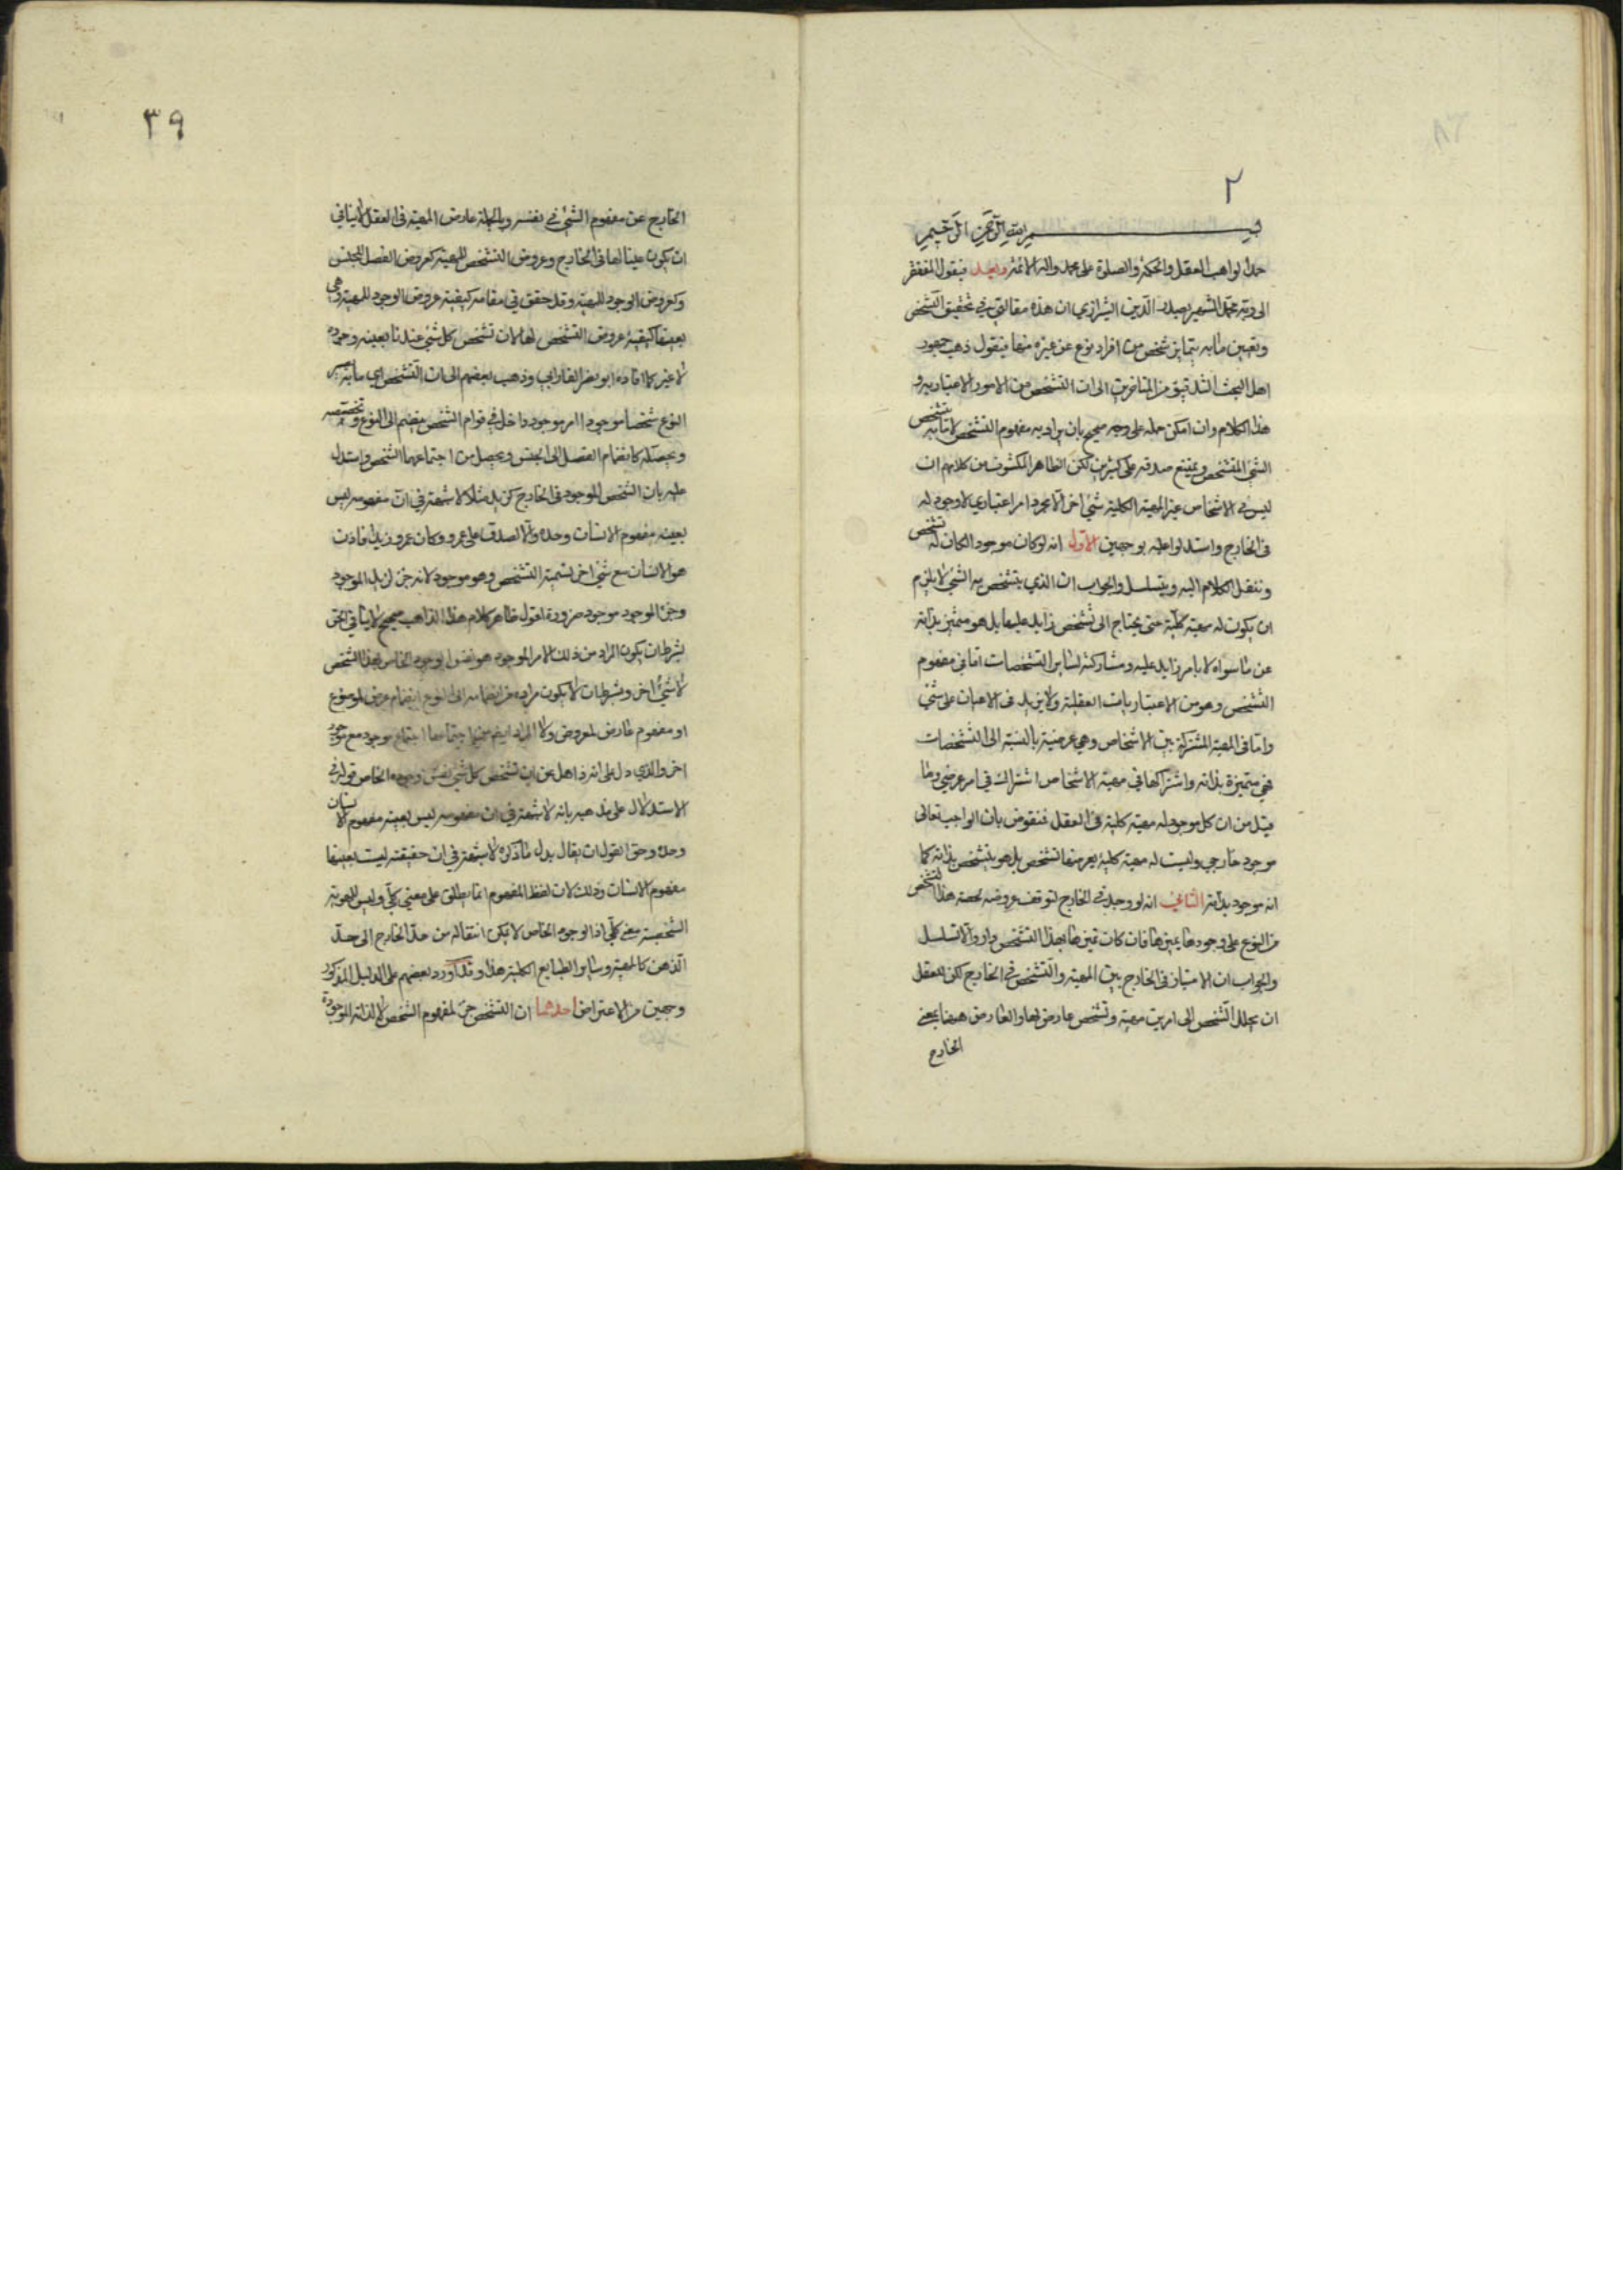 ٢
بسم الله الرحمن الرحيم
حمدا لواهب العقل والحكمة والصلوة على محمد واله الائمة وبعد فيقول المفتقر
الى ربه محمد الشهير بصدر الدين الشيرازي ان هذه مقالتي في تحقيق التشخص
وتعيين ما به يتمايز شخص من افراد نوع عن غيره منها فنقول ذهب جمهور
اهل البحث التدقيق من المتاخرين الى ان التشخص من الامور الاعتبارية و
هذا الكلام وان امكن حمله على وجه صحيح بان يراد به مفهوم التشخص لا ما به يتشخص
الشئ المتشخص ويمتنع صدقه على كثيرين لكن الظاهر المكشوف من كلامهم ان
ليس في الاشخاص غير المهية الكلية شئ اخر الا مجرد امر اعتباري لا وجود له
في الخارج واستدلوا عليه بوجهين الاول انه لو كان موجودا لكان له تشخص
وننقل الكلام اليه ويتسلسل والجواب ان الذي يتشخص به الشئ لا يلزم
ان يكون له مهية كلية حتى يحتاج الى تشخص زايد عليها بل هو متميز بذاته
عن ما سواه لا بامر زايد عليه ومشاركته لساير التشخصات اما في مفهوم
التشخص وهو من الاعتباريات العقلية ولا يزيد في الاعيان على شئ
واما في المهية المشتركة بين الاشخاص وهي عرضية بالنسبة الى التشخصات
فهي متميزة بذاته واشتراكها في مهية الاشخاص اشتراك في امر عرضي وما
قيل من ان كل موجود له مهية كلية في العقل فنقوض بان الواجب تعالى
موجود خارجي وليست له مهية كلية يعرضها تشخص بل هو يتشخص بذاته كما
انه موجود بذاته الثاني انه لو وجد في الخارج لتوقف عروضه لحصة هذا الشخص
من النوع على وجودها يميزها فان كان تميزها بهذا التشخص دار والا تسلسل
والجواب ان الامتياز في الخارج بين المهية والتشخص في الخارج لكن للعقل
ان يحلل الشخص الى امرين مهية وتشخص عارض لها والعارض هيهنا بمعنى
الخارج
٣٩
الخارج عن مفهوم الشئ في نفسه وبالجملة عارض المهية في العقل لا ينافي
ان يكون عينا لها في الخارج وعروض التشخص للمهية كعروض الفصل للجنس
وكعروض الوجود للمهية وقد حقق في مقامه كيفية عروض الوجود للمهية وهي
بعينها كيفية عروض التشخص لها لان تشخص كل شئ عندنا بعينه وجوده
لا غير كما افاده ابو نصر الفارابي وذهب بعضهم الى ان التشخص اي ما به يصير
النوع شخصا موجودا امر موجود داخل في قوام الشخص ينضم الى النوع وتخصصه
ويحصله كانضمام الفصل الى الجنس ويحصل من اجتماعهما الشخص واستدل
عليه بان الشخص الموجود في الخارج كزيد مثلا لا شبهة في ان مفهومه ليس
بعينه مفهوم الانسان وحده والا لصدق على عمرو وكان عمرو زيدا فاذن
هو الانسان مع شئ اخر نسميه التشخص وهو موجود لانه جزء لزيد الموجود
وجزء الموجود موجود ضرورة اقول ظاهر كلام هذا الذاهب صحيح لا ينافي الحق
بشرط ان يكون المراد من ذلك الامر الموجود هو نفس الوجود الخاص بهذا الشخص
لا شئ اخر وبشرط ان لا يكون مراده من انضمامه الى النوع انضمام عرض لموضوع
او مفهوم عارض لمعروض ولا المراد ايضا من اجتماعهما اجتماع موجود مع موجود
اخر والذي دل على انه ذاهل عن ان تشخص كل شئ نفس وجوده الخاص قوله في
الاستدلال على مذهبه بانه لا شبهة في ان مفهومه ليس بعينه مفهوم الانسان
وحده وحق القول ان يقال بدل ما ذكره لا شبهة في ان حقيقته ليست بعينها
مفهوم الانسان وذلك لان لفظ المفهوم انما يطلق على معنى كلي وليس للهوية
الشخصية معنى كلي اذ الوجود الخاص لا يمكن انتقاله من حد الخارج الى حد
الذهن كالمهية وساير الطبايع الكلية هذا وقد اورد بعضهم على الدليل المذكور
وجهين من الاعتراض احدهما ان التشخص جزء لمفهوم الشخص لا لذاته الموجودة